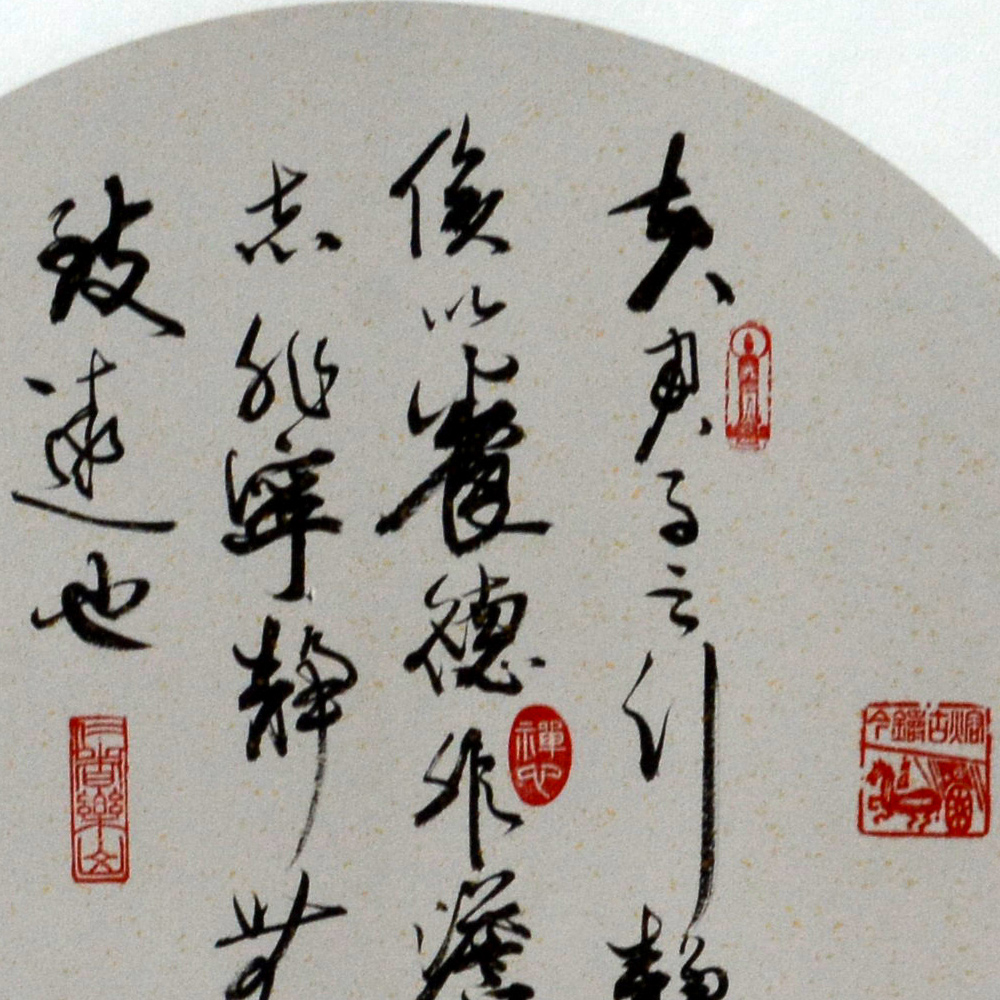 夫君子之行靜
儉以養德非澹
志非寧靜無
致遠也
禪心
古鑄今